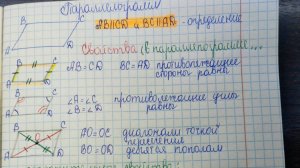 Параллелограмм
B C
AB||CD и BC||AD - определение
A D
Свойства (в параллелограмме...
B C
AB=CD BC=AD противолежащие
стороны равны
A D
B C
∠A=∠C противолежащие углы
∠B=∠D равны
A D
B C
AO=OC диагонали точкой
O пересечения
BO=OD делятся пополам
A D